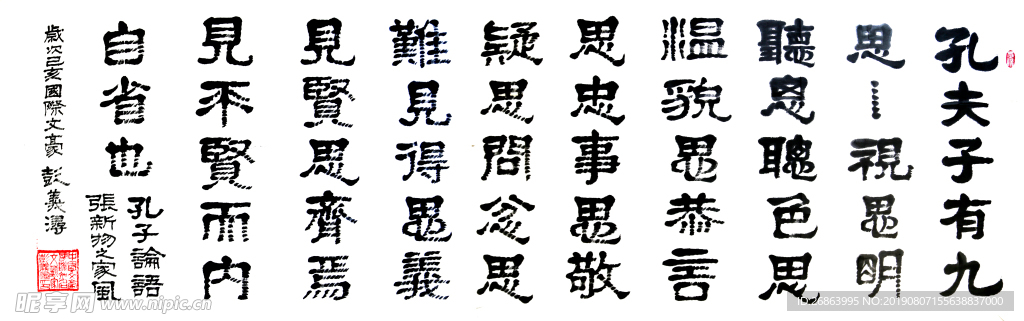 孔夫子有九
思——視思明
聽思聰色思
温貌思恭言
思忠事思敬
疑思問忿思
難見得思義
見賢思齊焉
見不賢而内
自省也
孔子論語
張新物之家風
歲次己亥國際文豪 彭義潯
昵享网 www.nipic.cn
ID:26863995 NO:20190807155638837000